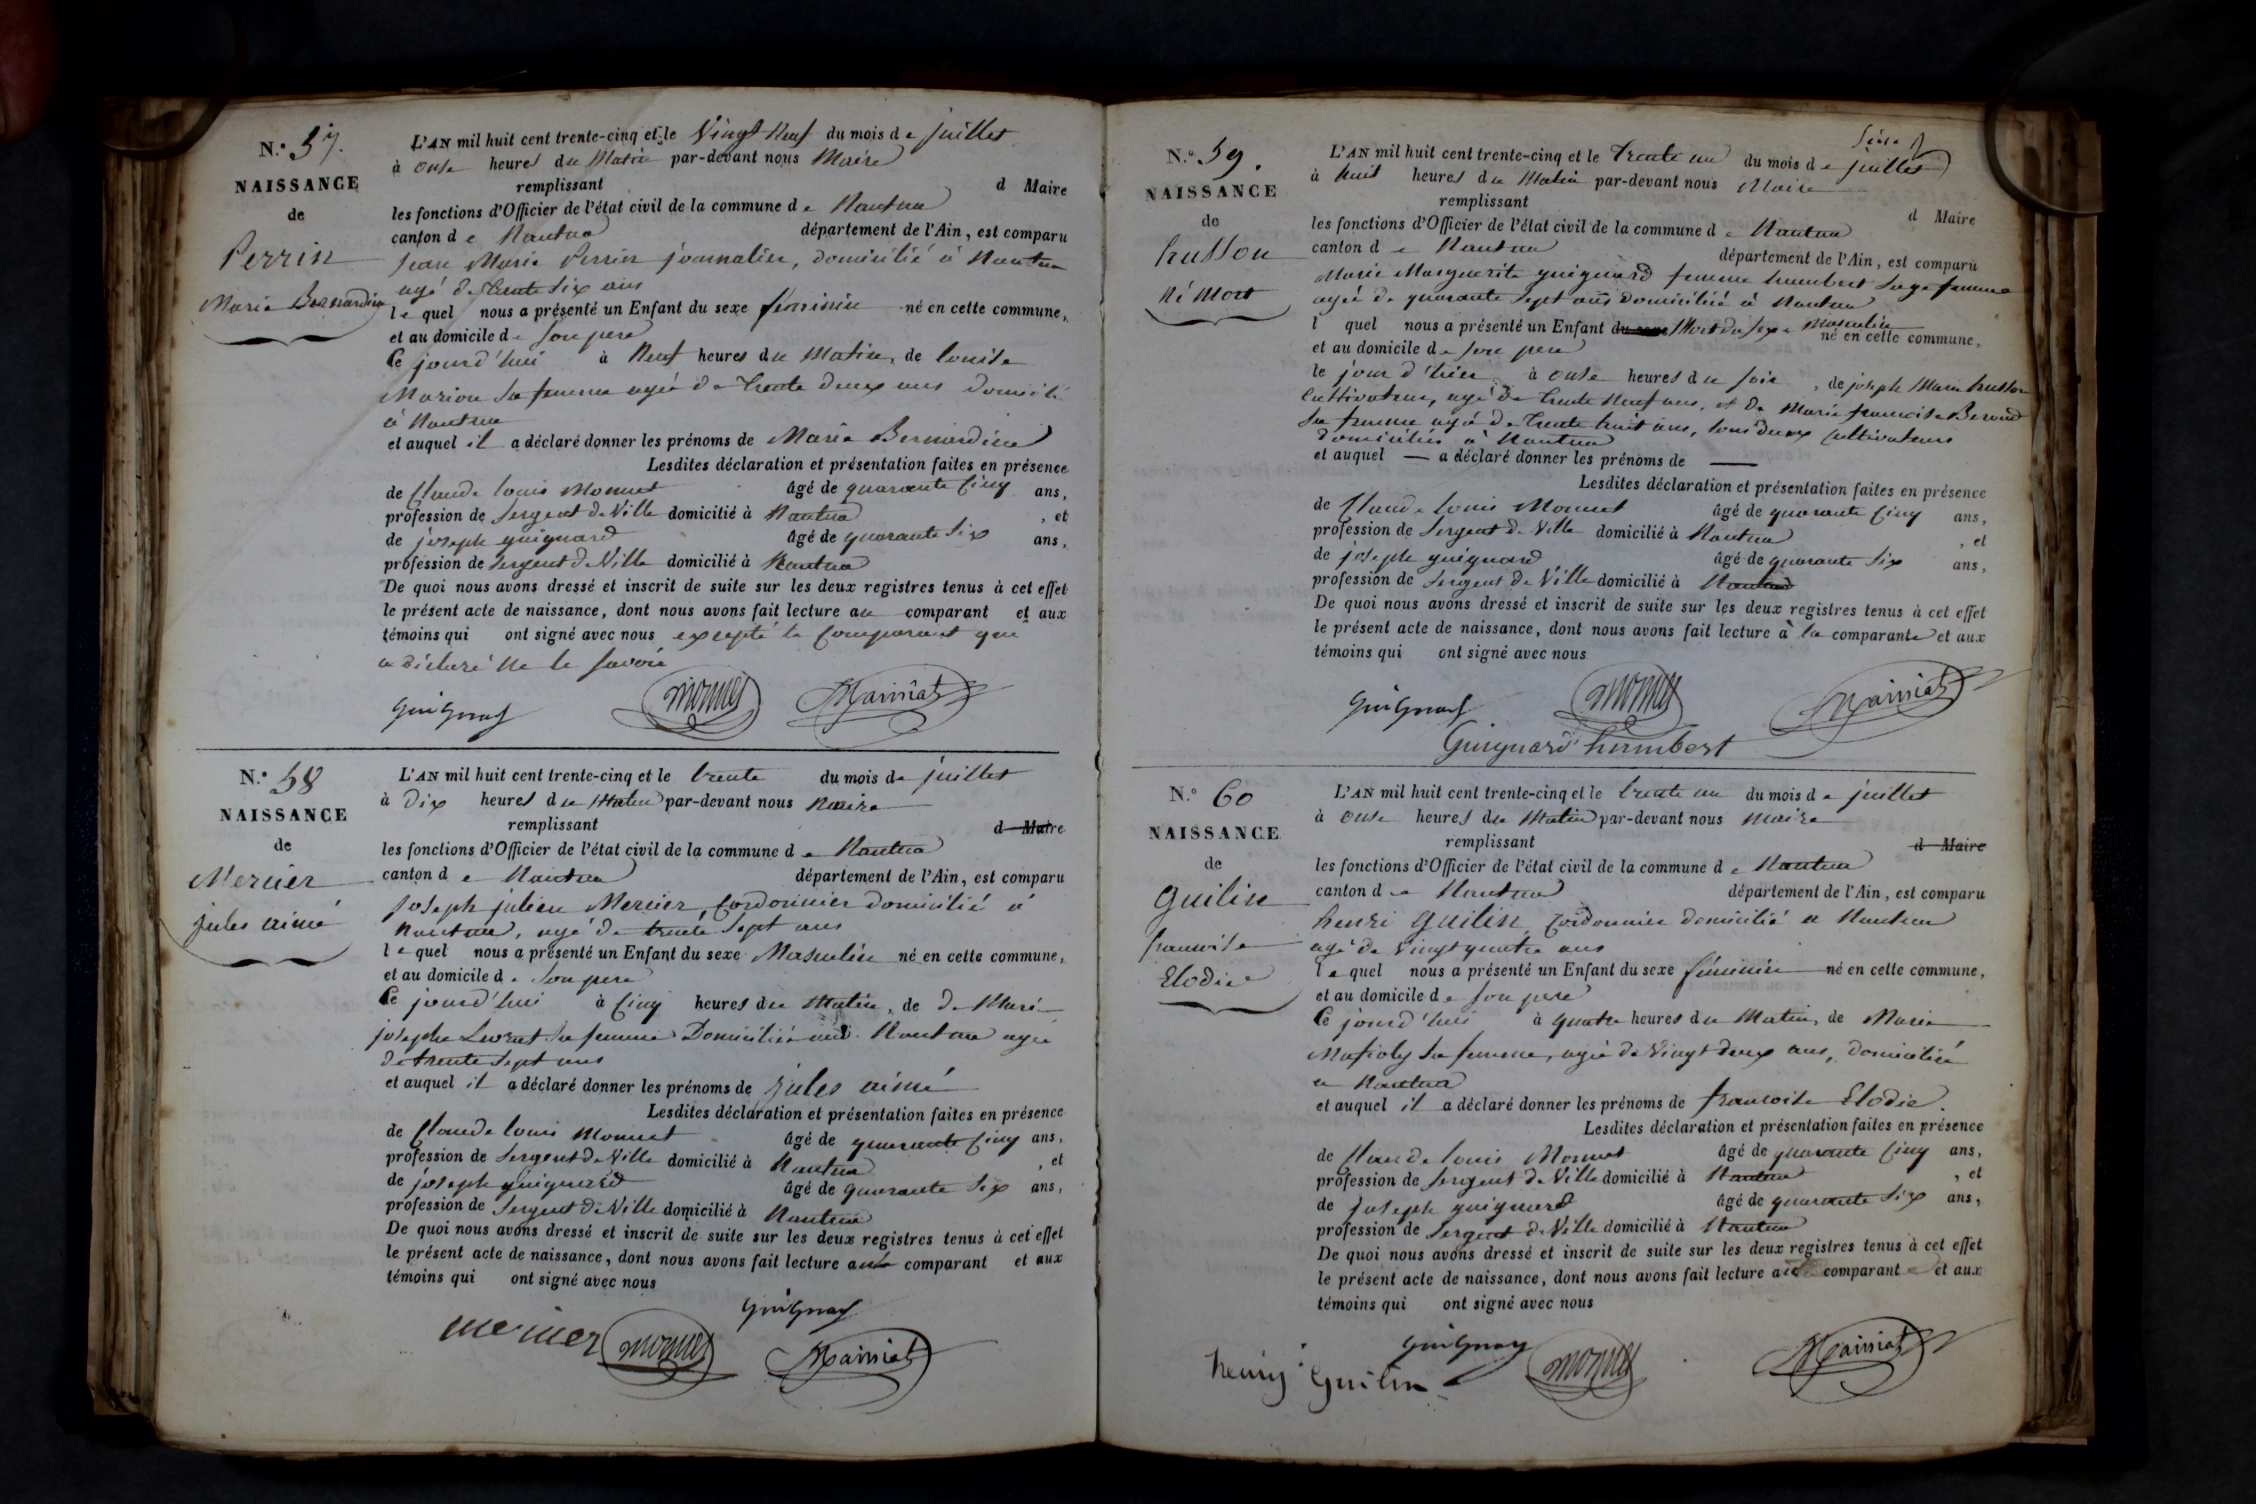 N.° 57.
NAISSANCE
de
Perrin
Marie Bernardine
L'AN mil huit cent trente-cinq et le Vingt Neuf du mois de juillet
à onse heures du Matin par-devant nous Maire
remplissant d Maire
les fonctions d'Officier de l'état civil de la commune de Nantua
canton de Nantua département de l'Ain, est comparu
Jean Marie Perrin journalier, domicilié à Nantua
agé de trente six ans
lequel nous a présenté un Enfant du sexe feminin né en cette commune,
et au domicile de son pere
Ce jourd'hui à Neuf heures du Matin, de louise
Marion sa femme agée de trente deux ans domicilié
à Nantua
et auquel il a déclaré donner les prénoms de Marie Bernardine
Lesdites déclaration et présentation faites en présence
de Claude louis Monnet âgé de quarante Cinq ans,
profession de Sergent de Ville domicilié à Nantua , et
de joseph guignard âgé de quarante Six ans,
profession de Sergent de Ville domicilié à Nantua
De quoi nous avons dressé et inscrit de suite sur les deux registres tenus à cet effet
le présent acte de naissance, dont nous avons fait lecture au comparant et aux
témoins qui ont signé avec nous excepté le Comparant que
a déclaré ne le savoir
GuiGnard monnet
N.° 58
NAISSANCE
de
Mercier
jules aimé
L'AN mil huit cent trente-cinq et le trente du mois de juillet
à Dix heures du Matin par-devant nous Maire
remplissant d Maire
les fonctions d'Officier de l'état civil de la commune de Nantua
canton de Nantua département de l'Ain, est comparu
Joseph julien Mercier Cordonnier domicilié à
Nantua, agé de trente Sept ans
lequel nous a présenté un Enfant du sexe Masculin né en cette commune,
et au domicile de son pere
Ce jourd'hui à Cinq heures du Matin, de De Marie
josephe sa femme Domiciliée Nantua agée
de trente Sept ans
et auquel il a déclaré donner les prénoms de jules aimé
Lesdites déclaration et présentation faites en présence
de Claude louis Monnet âgé de quarante Cinq ans,
profession de Sergent de Ville domicilié à Nantua , et
de joseph guignard âgé de quarante Six ans,
profession de Sergent de Ville domicilié à Nantua
De quoi nous avons dressé et inscrit de suite sur les deux registres tenus à cet effet
le présent acte de naissance, dont nous avons fait lecture au comparant et aux
témoins qui ont signé avec nous
GuiGnard
mercier monnet
N.° 59.
NAISSANCE
de
husson
Né Mort
L'AN mil huit cent trente-cinq et le trente un du mois de juillet
à huit heures du Matin par-devant nous Maire
remplissant d Maire
les fonctions d'Officier de l'état civil de la commune de Nantua
canton de Nantua département de l'Ain, est comparu
Marie Marguerite guignard femme humbert Sage femme
agée de quarante Sept ans domiciliée à Nantua
l quel nous a présenté un Enfant du sexe Mort du sexe Masculin né en cette commune,
et au domicile de son pere
le jour d'hier à onse heures du soir, de joseph Marie husson
Cultivateur, agé de trente Neuf ans, et de Marie francoise
sa femme agé de trente huit ans, tous deux Cultivateurs
domiciliés à Nantua
et auquel — a déclaré donner les prénoms de —
Lesdites déclaration et présentation faites en présence
de Claude louis Monnet âgé de quarante Cinq ans,
profession de Sergent de Ville domicilié à Nantua , et
de joseph guignard âgé de quarante Six ans,
profession de Sergent de Ville domicilié à Nantua
De quoi nous avons dressé et inscrit de suite sur les deux registres tenus à cet effet
le présent acte de naissance, dont nous avons fait lecture à la comparante et aux
témoins qui ont signé avec nous
GuiGnard monnet
Guignard humbert
N.° 60
NAISSANCE
de
Guilin
francoise
Elodie
L'AN mil huit cent trente-cinq et le trente un du mois de juillet
à onse heures du Matin par-devant nous Maire
remplissant d Maire
les fonctions d'Officier de l'état civil de la commune de Nantua
canton de Nantua département de l'Ain, est comparu
henri guilin, Cordonnier domicilié a Nantua
agé de Vingt quatre ans
lequel nous a présenté un Enfant du sexe féminin né en cette commune,
et au domicile de son pere
Ce jourd'hui à quatre heures du Matin, de Marie
sa femme, agée de Vingt deux ans, domiciliée
a Nantua
et auquel il a déclaré donner les prénoms de francoise Elodie.
Lesdites déclaration et présentation faites en présence
de Claude louis Monnet âgé de quarante Cinq ans,
profession de Sergent de Ville domicilié à Nantua , et
de Joseph guignard âgé de quarante Six ans,
profession de Sergent de Ville domicilié à Nantua
De quoi nous avons dressé et inscrit de suite sur les deux registres tenus à cet effet
le présent acte de naissance, dont nous avons fait lecture au comparant et aux
témoins qui ont signé avec nous
henry Guilin GuiGnard monnet